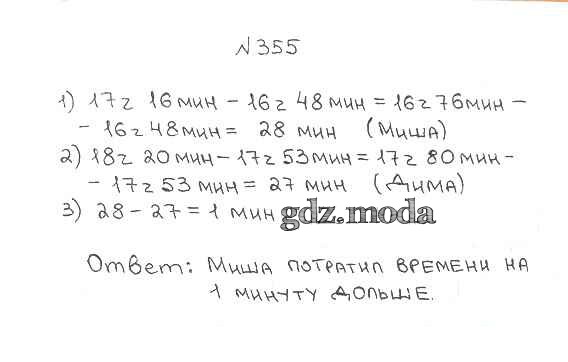 №355
1) 17г 16мин – 16г 48мин = 16г 76мин –
– 16г 48мин = 28 мин (Миша)
2) 18г 20мин – 17г 53мин = 17г 80мин –
– 17г 53 мин = 27 мин (Дима)
3) 28 – 27 = 1 мин gdz.moda
Ответ: Миша потратил времени на
1 минуту дольше.